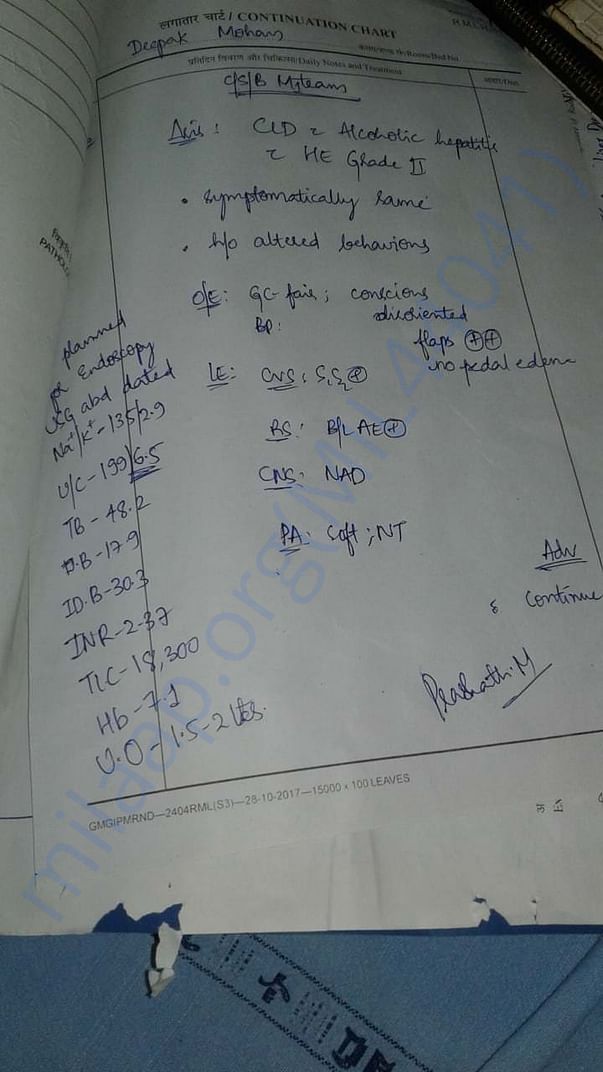 लगातार चार्ट / CONTINUATION CHART
Deepak Mohan
प्रतिदिन विवरण और चिकित्सा/Daily Notes and Treatment
C/S/B M1 team
CLD c Alcoholic hepatitis
c HE Grade II
• Symptomatically same
• h/o altered behaviours
O/E: GC-fair; conscious
BP: disoriented
flaps ++
no pedal edema
LE: CVS: S1S2 +
RS: B/L AE +
CNS: NAD
PA: Soft; NT
planned
for Endoscopy
USG abd dated
Na+/K+ - 135/2.9
U/C - 199/6.5
TB - 48.2
D.B - 17.9
ID.B - 30.3
INR - 2.37
TLC - 18,300
Hb - 7.1
U.O - 1.5-2 lts.
Adv
continue
Prashath.M
GMGIPMRND—2404RML(S3)—28-10-2017—15000 x 100 LEAVES
milaap.org